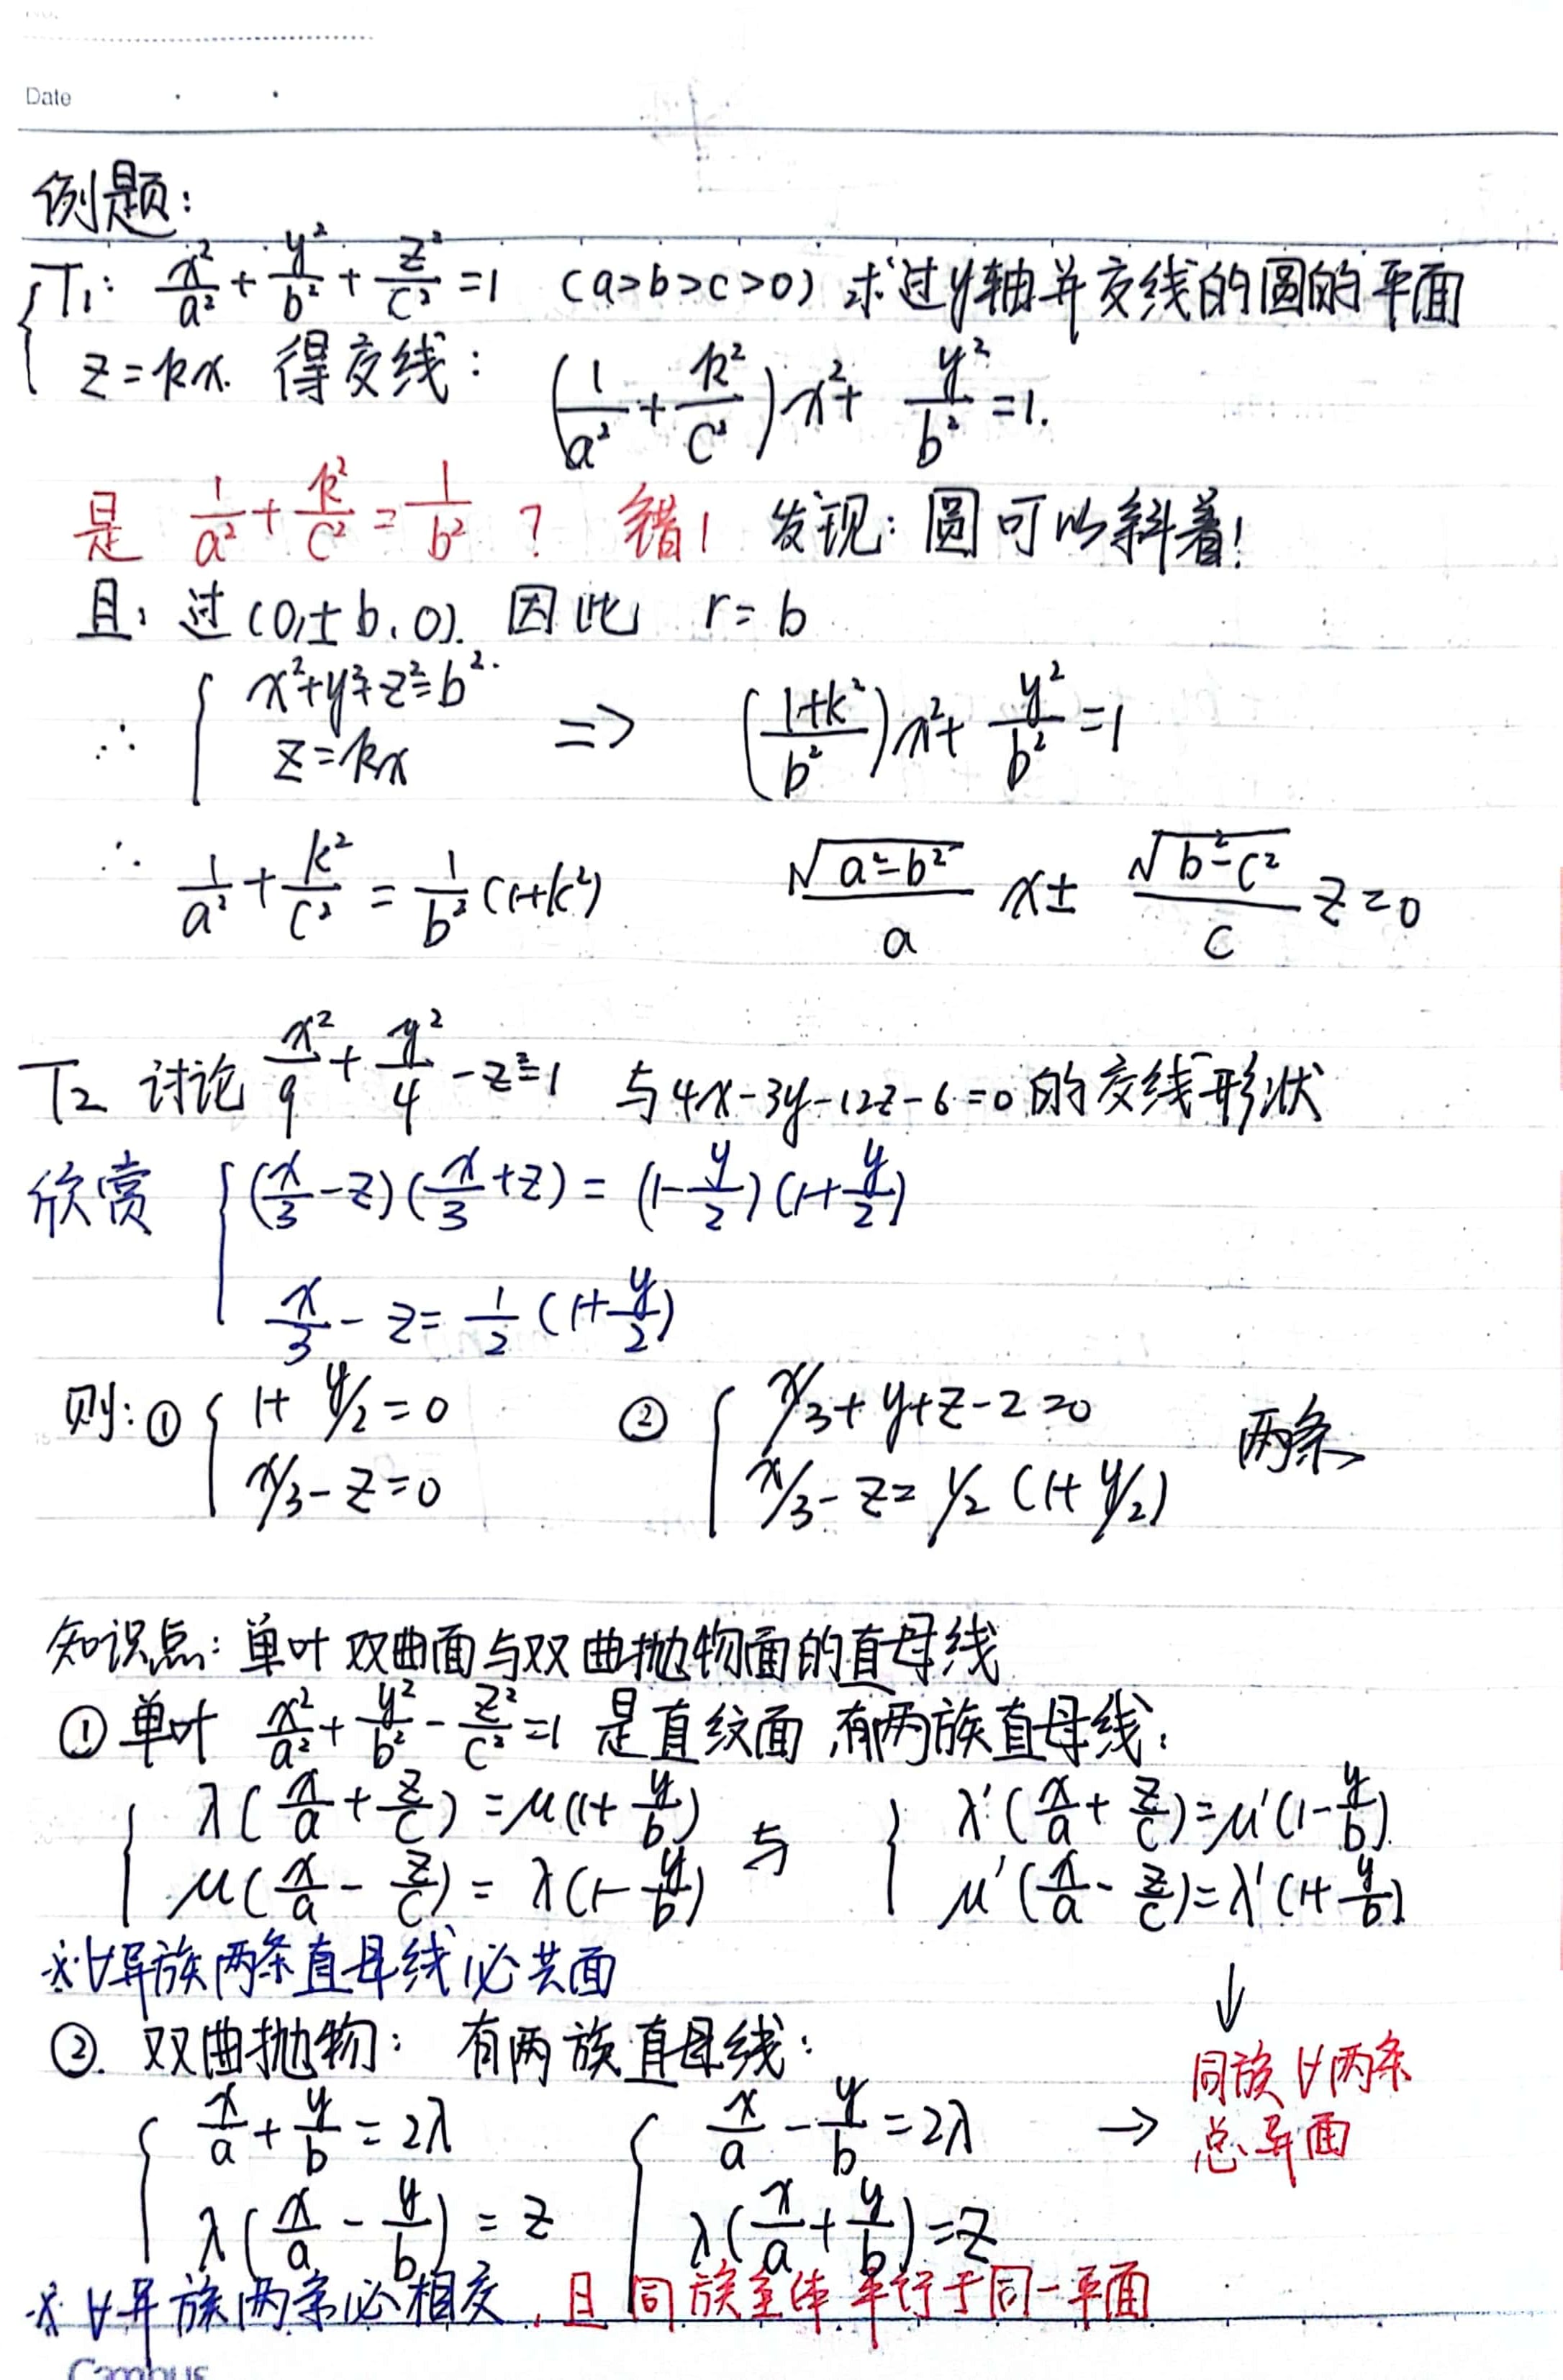 Date
例题:
T₁: x²/a² + y²/b² + z²/c² = 1 (a>b>c>0) 求过y轴并交线的圆的平面
z=kx. 得交线: (1/a² + k²/c²)x² + y²/b² = 1.
是 1/a² + k²/c² = 1/b² ? 错! 发现: 圆可以斜着!
且: 过(0,±b,0). 因此 r=b
∴ { x²+y²+z²=b². z=kx => ((1+k²)/b²)x² + y²/b² = 1
∴ 1/a² + k²/c² = 1/b² (1+k²) √(a²-b²)/a x ± √(b²-c²)/c z = 0
T₂ 讨论 x²/9 + y²/4 - z² = 1 与 4x-3y-12z-6=0 的交线形状
欣赏 { (x/3 - z)(x/3 + z) = (1 - y/2)(1 + y/2)
x/3 - z = 1/2 (1 + y/2)
则: ① { 1 + y/2 = 0 ② { x/3 + y + z - 2 = 0 两条
x/3 - z = 0 x/3 - z = 1/2 (1 + y/2)
知识点: 单叶双曲面与双曲抛物面的直母线
① 单叶 x²/a² + y²/b² - z²/c² = 1 是直纹面,有两族直母线:
{ λ(x/a + z/c) = μ(1 + y/b) 与 { λ'(x/a + z/c) = μ'(1 - y/b).
μ(x/a - z/c) = λ(1 - y/b) μ'(x/a - z/c) = λ'(1 + y/b)
※∀异族两条直母线必共面 ↓
②. 双曲抛物: 有两族直母线:
同族∀两条
{ x/a + y/b = 2λ { x/a - y/b = 2λ → 总异面
λ(x/a - y/b) = z λ(x/a + y/b) = z
※∀异族两条必相交, 且同族全体平行于同一平面
Campus